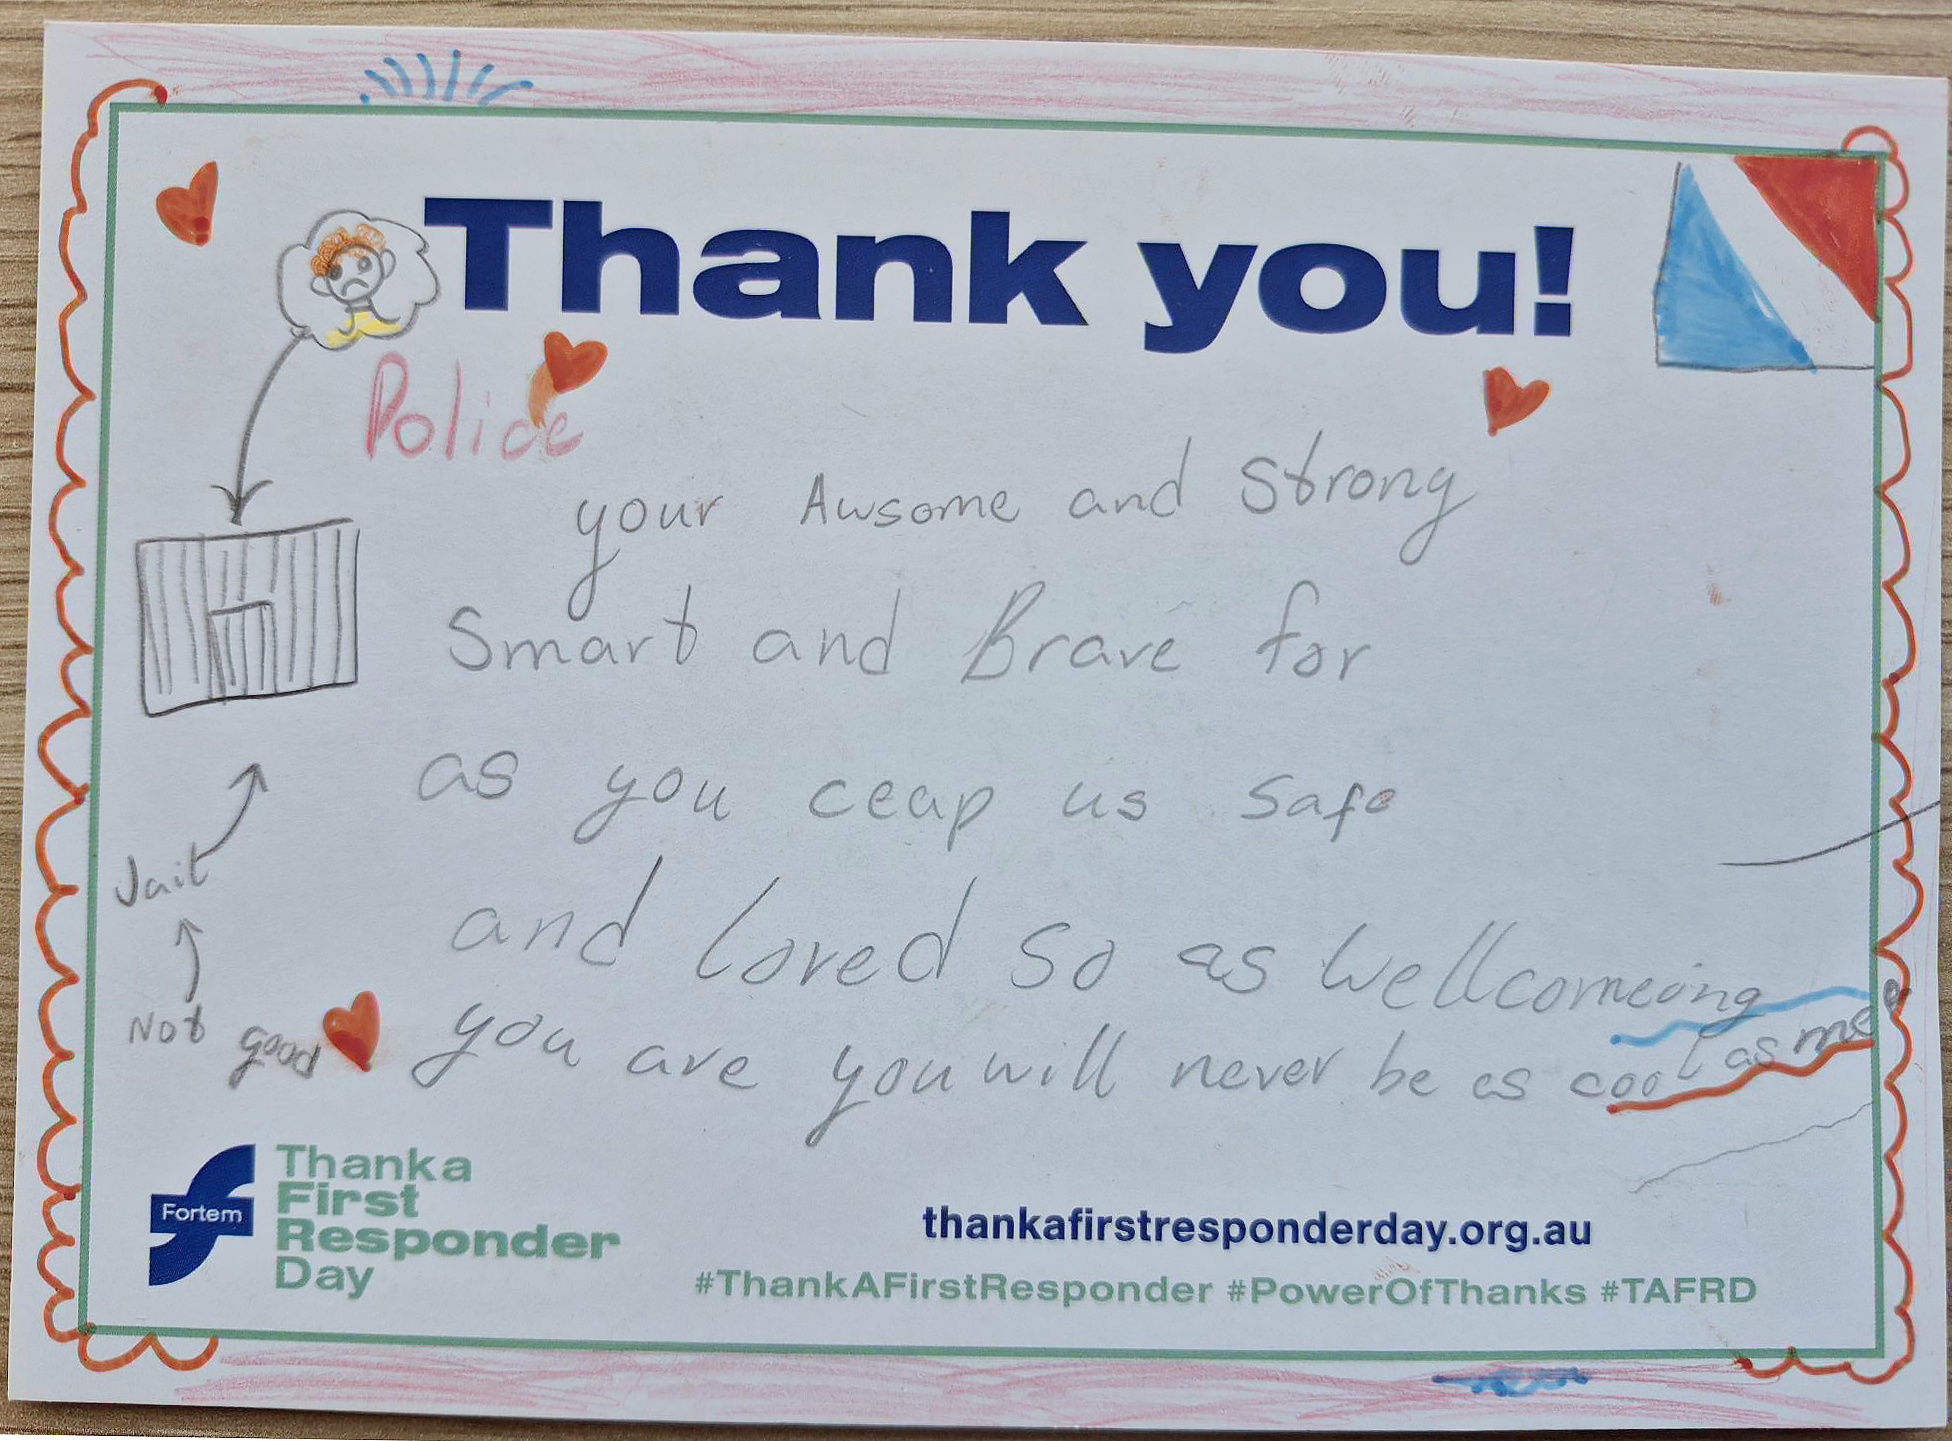 Thank you!
Police
your Awsome and Strong
Smart and Brave for
as you ceap us safe
and loved so as wellcomeing
you are you will never be as cool as me
Jail
Not good
Fortem
Thank a
First
Responder
Day
thankafirstresponderday.org.au
#ThankAFirstResponder #PowerOfThanks #TAFRD